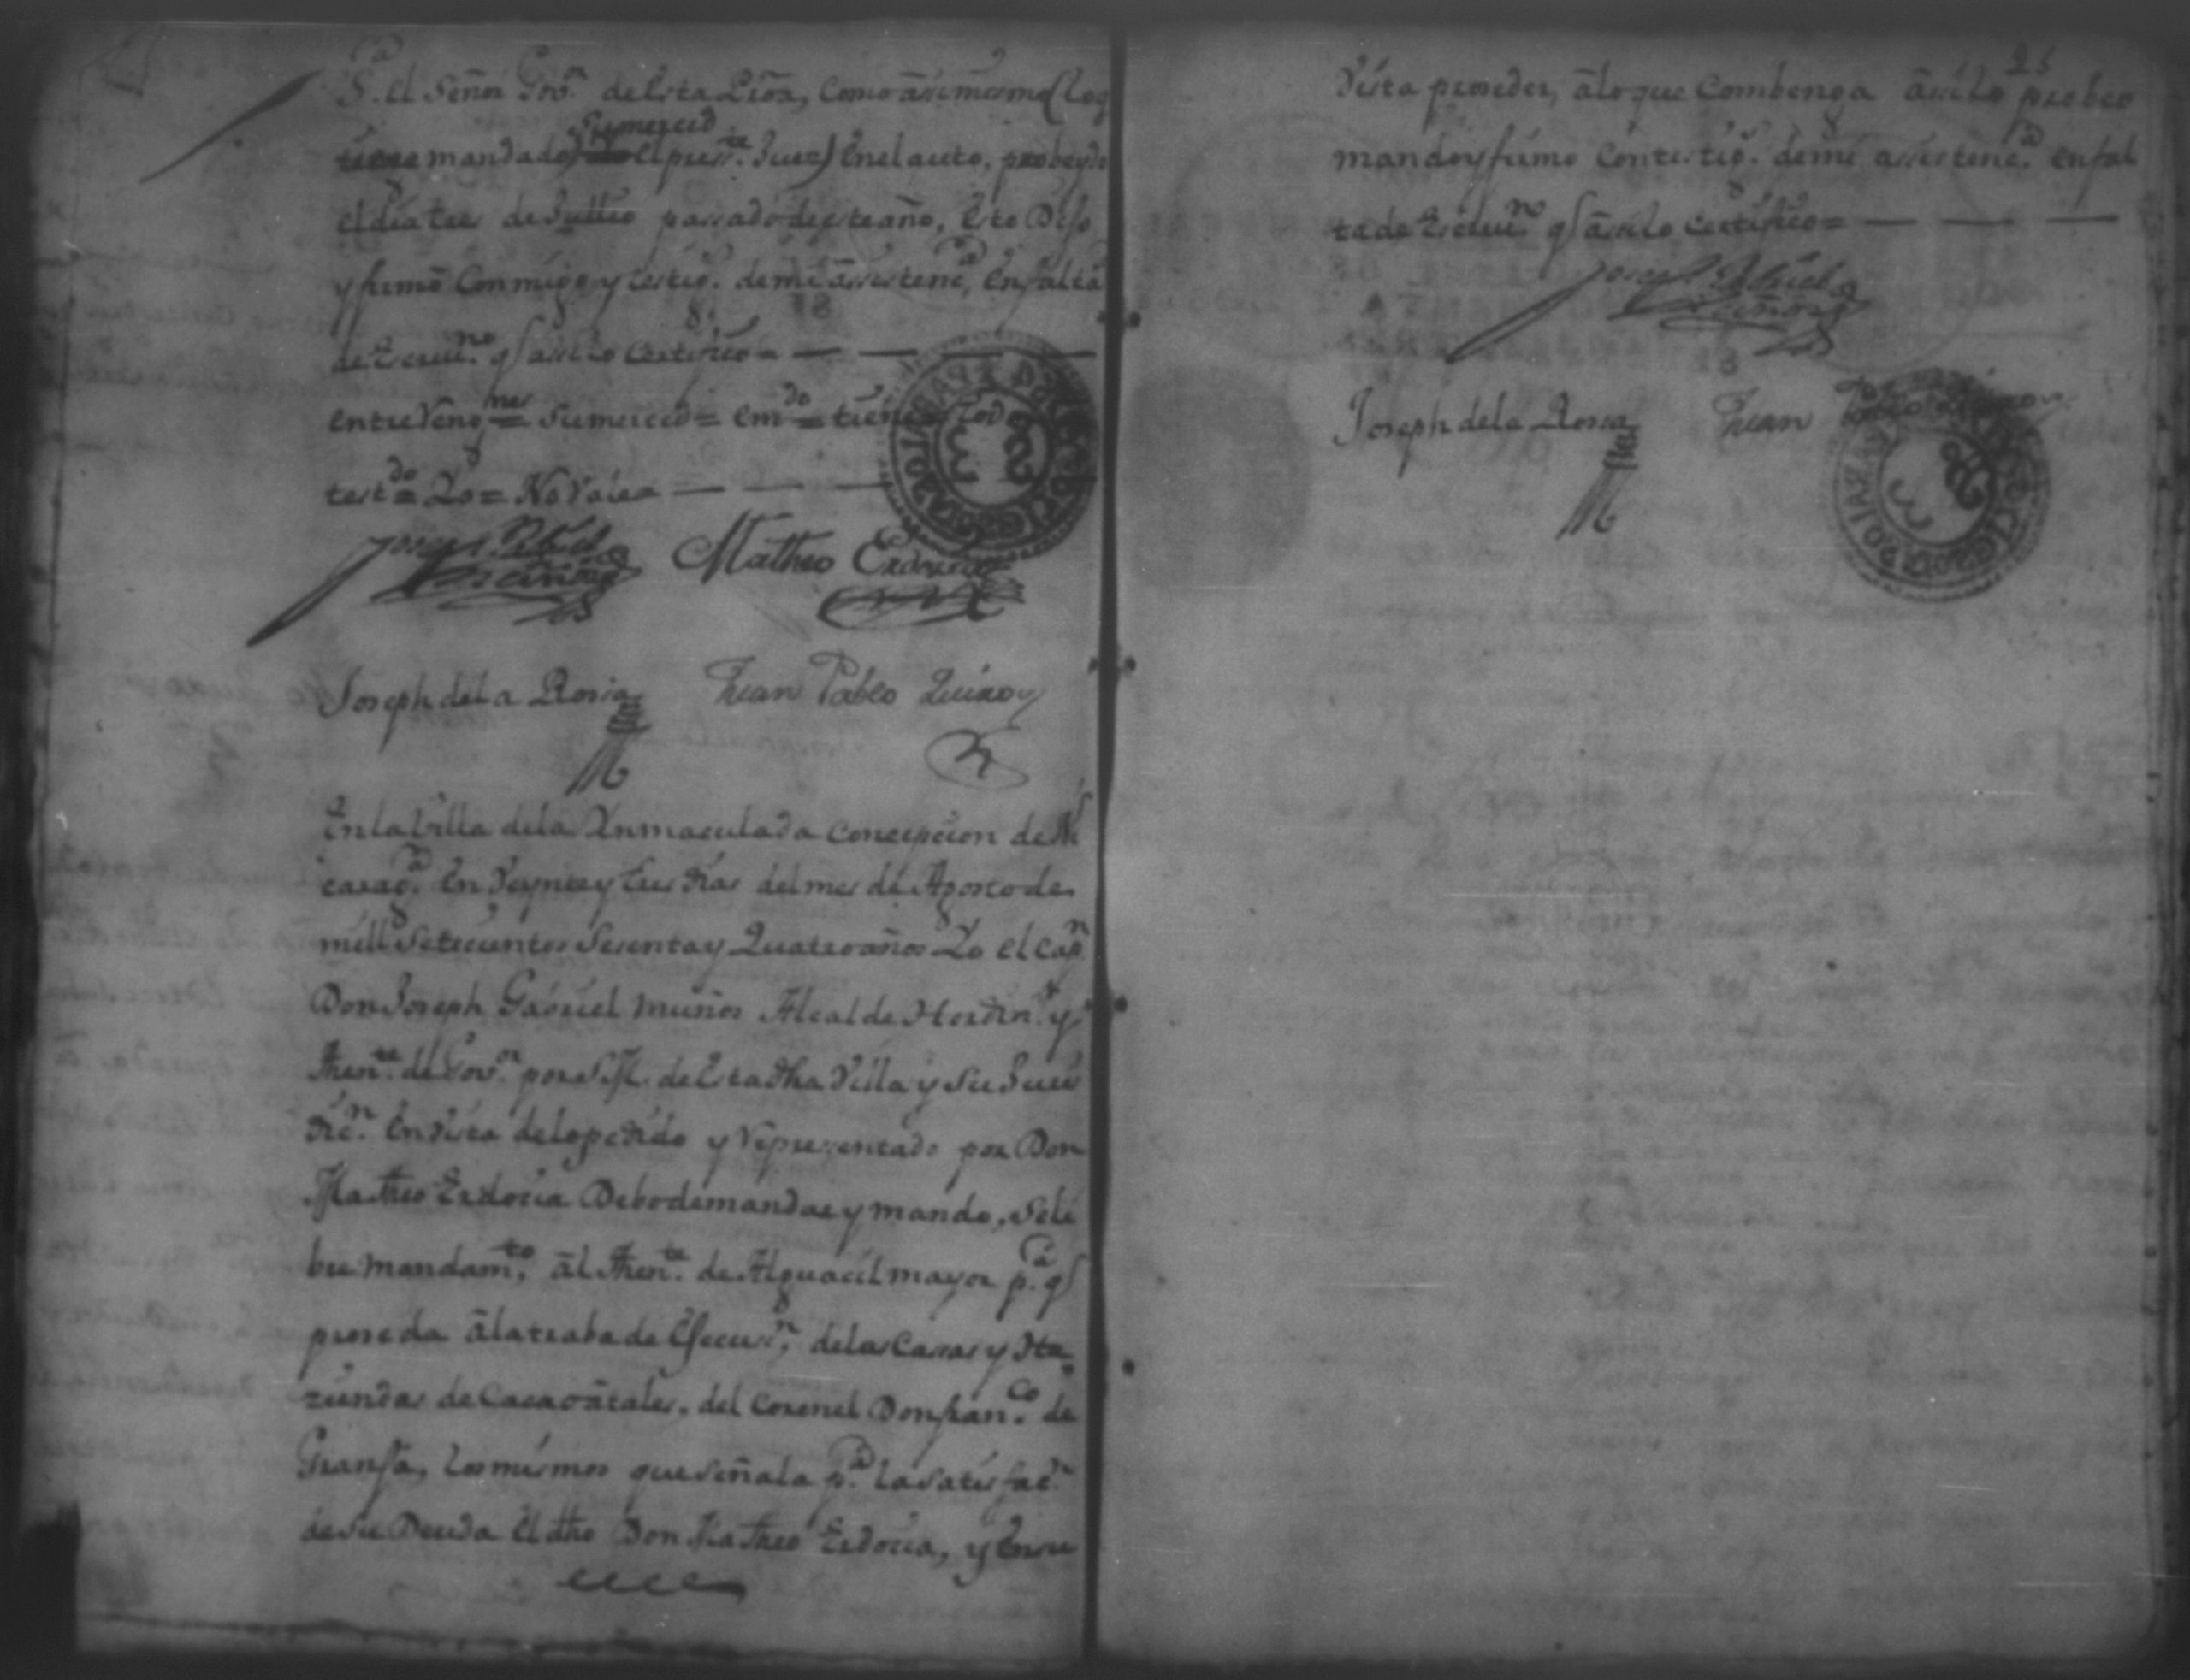 S.ª el Señor Gov.or de Esta Proa, Como asimesmo (loq
tiene mandado Sumerced el press.te Juez) En el auto, probeydo
el dia tres de Jullio passado de este año, Esto Dijo
y firmó Conmigo y testig.s de mi assistenc.a En falta
de Escriv.no q assilo Certifico=
entre Reng.nes = Sumerced = em.do = tiene
test.do = Lo = No Vale=
Joseph Gabriel Muños Matheo Erdocia
Joseph dela Rossa Juan Pablo Quiroz
En la Villa dela Inmaculada Concepcion de Ni
carag.a En Veynte y tres dias del mes de Agosto de
mill Setecientos Sesenta y Quatro años Yo el Cap.n
Don Joseph Gabriel Muños Alcalde Hordin.o y
Then.te de Gov.or por S.M. de Esta dha Villa y Su Juris
dic.n En Vista delo pedido y Representado por Don
Matheo Erdocia Debo de mandar y mando, Se li
bre mandam.to al Then.te de Alguacil mayor p.a q
proseda ala traba de Esecus.n de las Casas y Ha
ziendas de Cacaotales, del Coronel Don fran.co de
Gransa, los mismos que señala p.a la satisfac.n
de Su Deuda El dho Don Matheo Erdocia, y En su
25
Vista proseder, alo que Combenga asilo probeo
mando y firmo Con testig.s de mi assistenc.a En fal
ta de Escriv.no q asilo Certifico=
Joseph Gabriel Muños
Joseph dela Rossa Juan